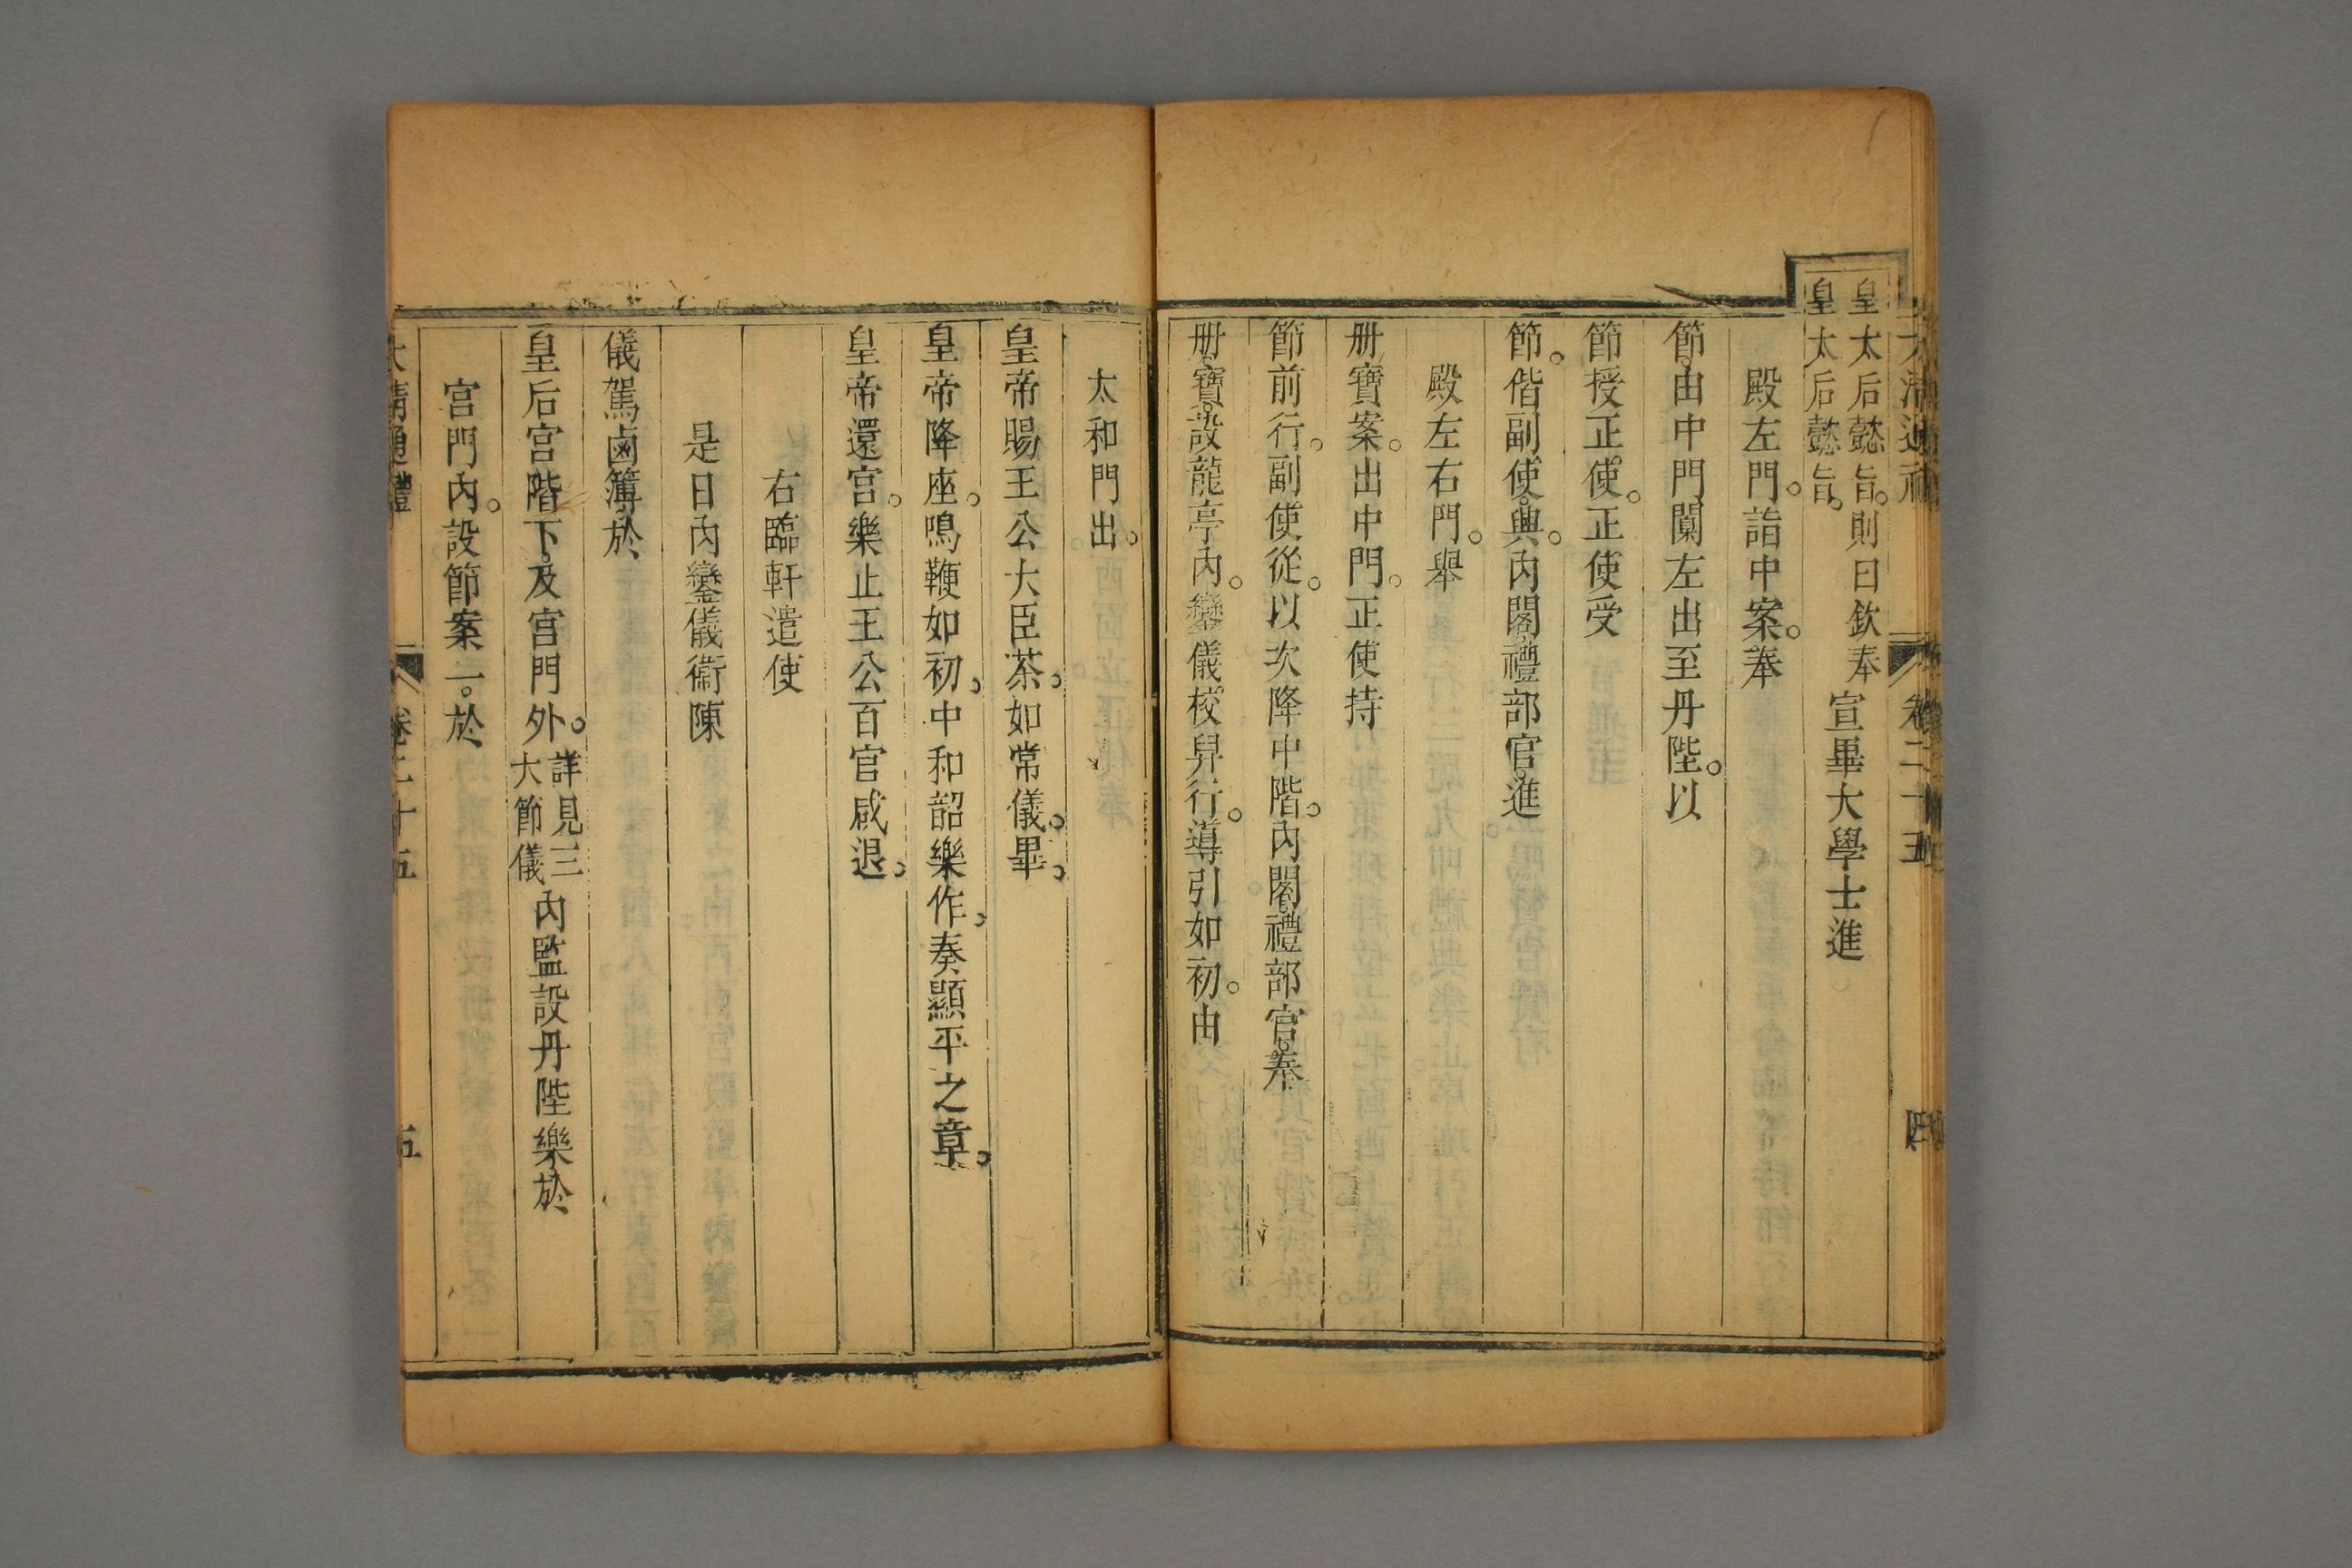 大清通禮 卷二十五 四
皇太后懿旨。則曰欽奉
皇太后懿旨。
宣畢大學士進
殿左門。詣中案。奉
節。由中門闑左出至丹陛。以
節授正使。正使受
節。偕副使。興。內閣禮部官。進
殿左右門。舉
册寶案。出中門。正使持
節前行。副使從。以次降中階。內閣禮部官。奉
册。寶。設龍亭內。鑾儀校舁行。導引如初。由
太和門出。
皇帝賜王公大臣茶。如常儀。畢。
皇帝降座。鳴鞭如初。中和韶樂作。奏顯平之章。
皇帝還宮。樂止王公百官咸退。
右臨軒遣使
是日內鑾儀衞陳
儀駕鹵簿於
皇后宮階下。及宮門外。
詳見三
大節儀
內監設丹陛樂於
宮門內。設節案一。於
大清通禮 卷二十五 五